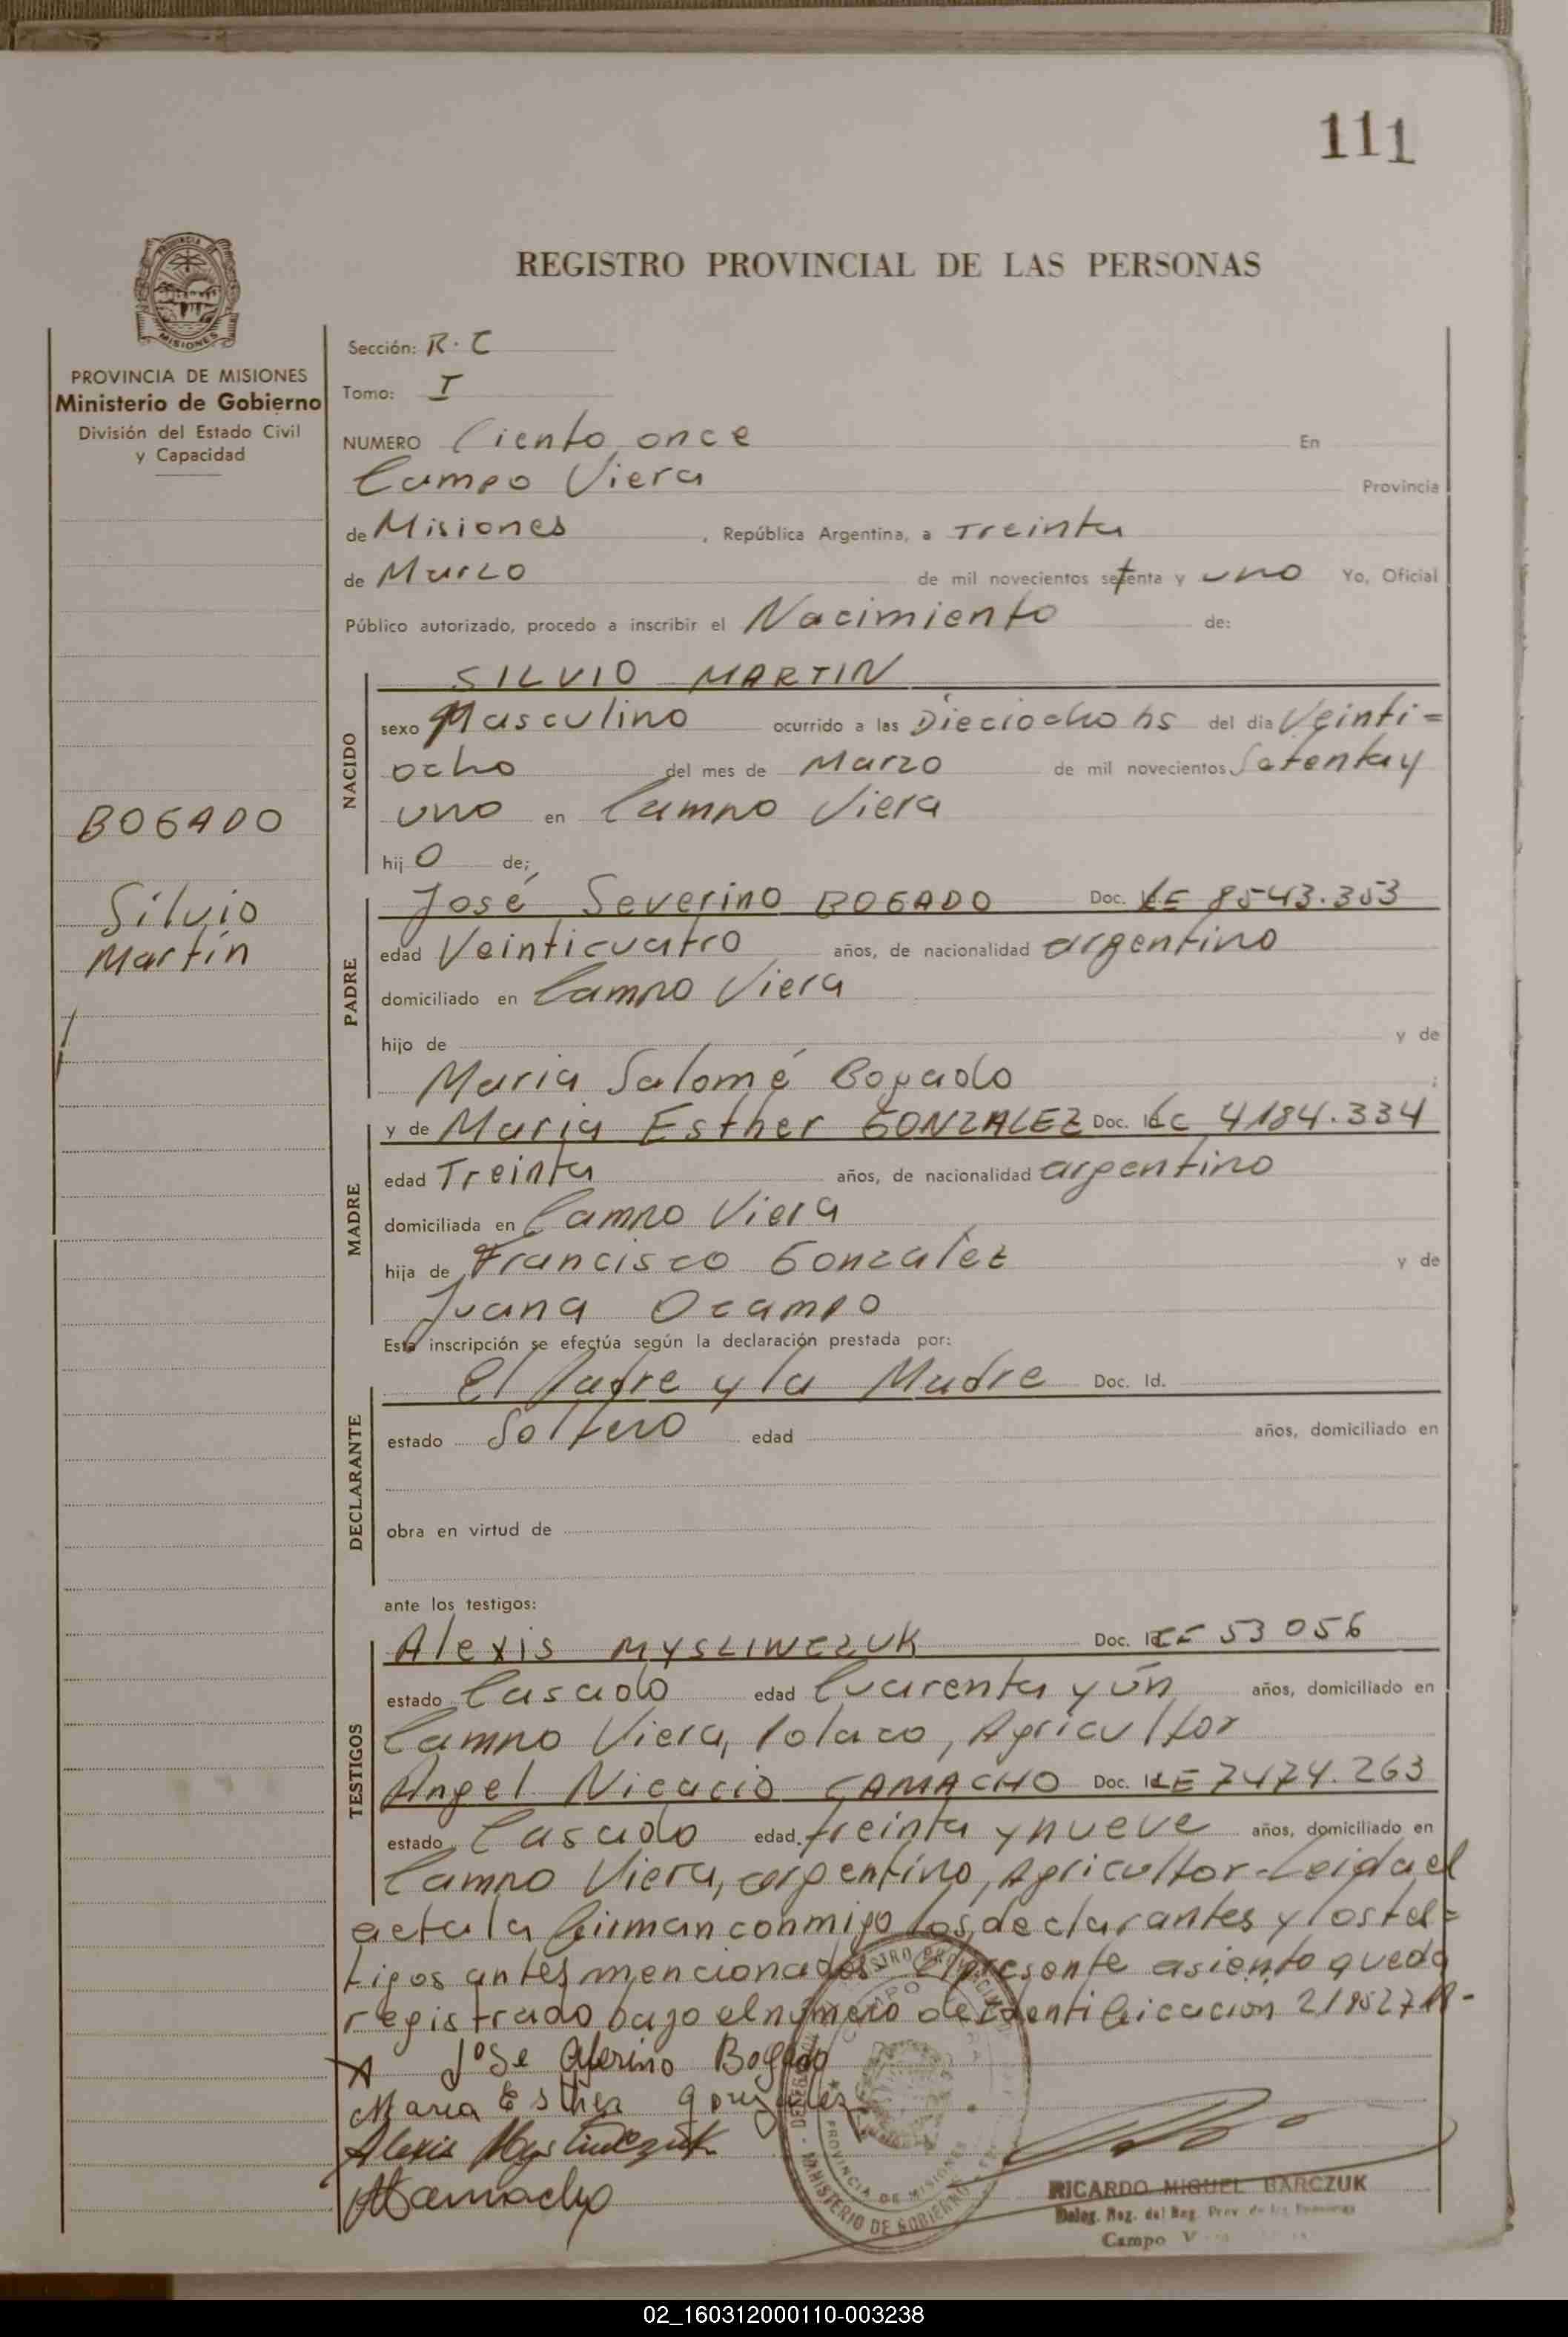 111
REGISTRO PROVINCIAL DE LAS PERSONAS
PROVINCIA DE MISIONES
Ministerio de Gobierno
División del Estado Civil
y Capacidad
BOGADO
Silvio
Martín
Sección: R.C
Tomo: I
NUMERO Ciento once En
Campo Viera Provincia
de Misiones, República Argentina, a Treinta
de Marzo de mil novecientos setenta y uno Yo, Oficial
Público autorizado, procedo a inscribir el Nacimiento de:
NACIDO
SILVIO MARTIN
sexo Masculino ocurrido a las Dieciocho hs del día Veinti=
ocho del mes de Marzo de mil novecientos Setenta y
uno en Campo Viera
hij o de;
PADRE
José Severino BOGADO Doc. LE 8543.353
edad Veinticuatro años, de nacionalidad argentino
domiciliado en Campo Viera
hijo de y de
Maria Salomé Bogado;
MADRE
y de Maria Esther GONZALEZ Doc. Id LC 4184.334
edad Treinta años, de nacionalidad argentino
domiciliada en Campo Viera
hija de Francisco Gonzalez y de
Juana Ocampo
Esta inscripción se efectúa según la declaración prestada por:
DECLARANTE
El Padre y la Madre Doc. Id.
estado Soltero edad años, domiciliado en
obra en virtud de
ante los testigos:
TESTIGOS
Alexis MYSLIWCZUK Doc. Id CE 53056
estado Casado edad Cuarenta y ún años, domiciliado en
Campo Viera, Polaco, Agricultor
Angel Nicacio CAMACHO Doc. Id LE 7474.263
estado Casado edad treinta y nueve años, domiciliado en
Campo Viera, argentino, Agricultor - Leida el
acta la firman conmigo los declarantes y los tes=
tigos antes mencionados - El presente asiento queda
registrado bajo el número de Identificacion
José Bogado
Maria Esther Gonzalez
Alexis Mysliwczuk
Camacho
PROVINCIA DE MISIONES
MINISTERIO DE GOBIERNO
RICARDO MIGUEL BARCZUK
Deleg. Reg. del Reg. Prov. de las Personas
Campo
02_160312000110-003238